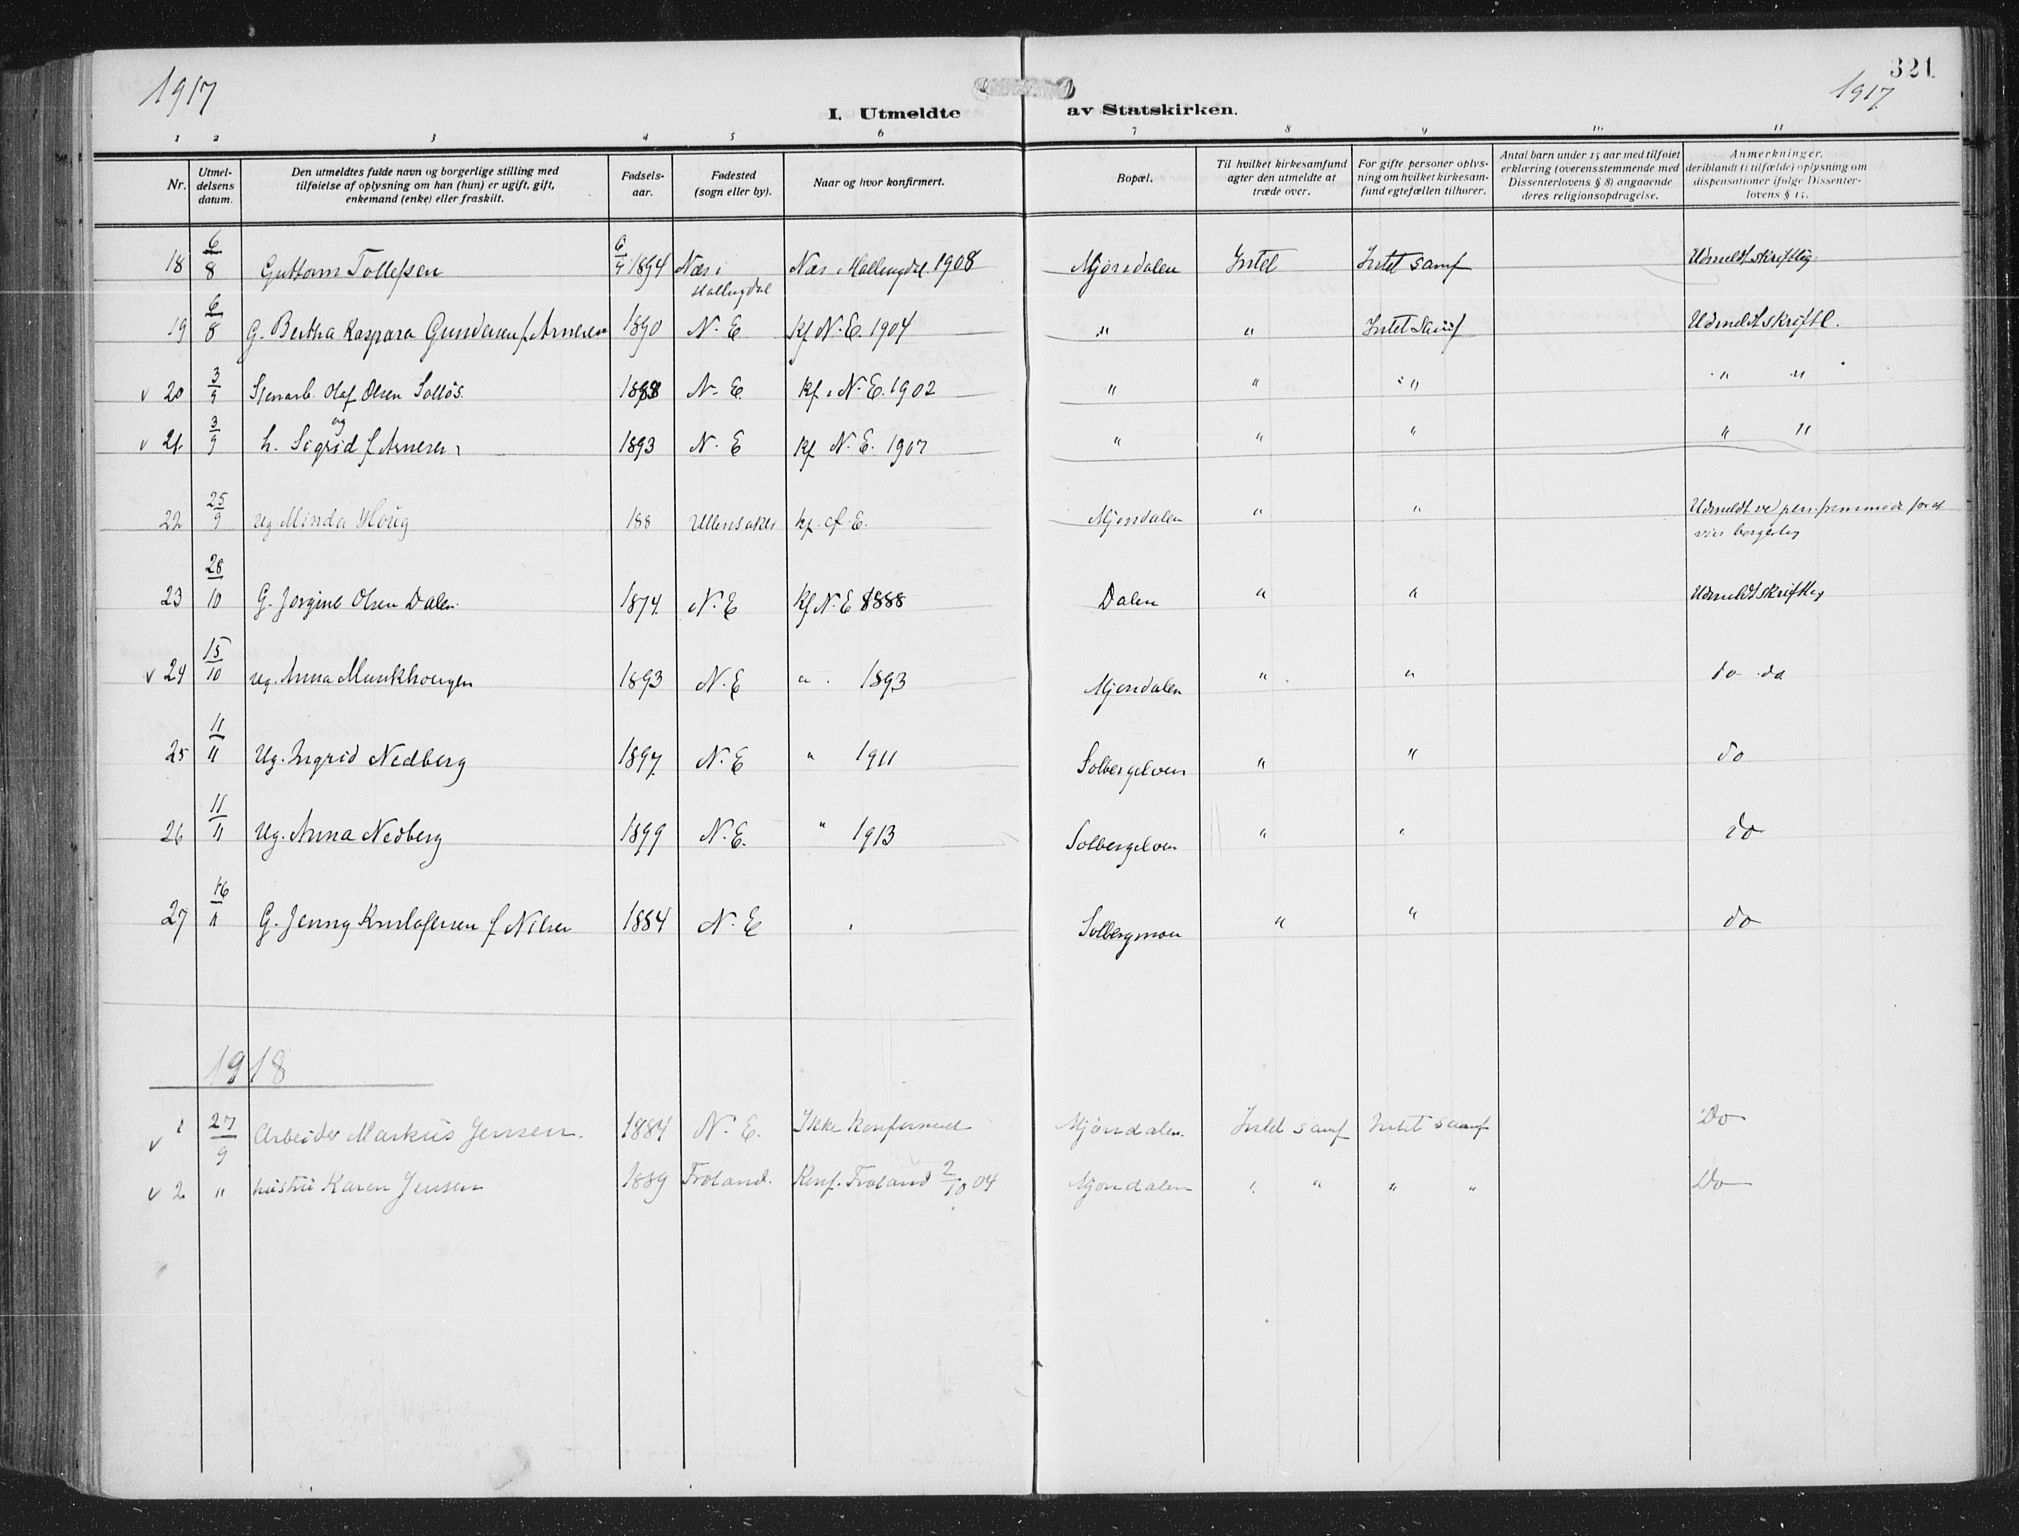 1917
321
1917.
I. Utmeldte av Statskirken.
1 2 3 4 5 6 7 8 9 10 11
Nr.
Utmel-
delsens
datum.
Den utmeldtes fulde navn og borgerlige stilling med
tilføielse af oplysning om han (hun) er ugift, gift,
enkemand (enke) eller fraskilt.
Fødsels-
aar.
Fødested
(sogn eller by).
Naar og hvor konfirmert.
Bopæl.
Til hvilket kirkesamfund
agter den utmeldte at
træde over.
For gifte personer oplys-
ning om hvilket kirkesam-
fund egtefællen tilhører.
Antal barn under 15 aar med tilføiet
erklæring (overensstemmende med
Dissenterlovens § 8) angaaende
deres religionsopdragelse.
Anmerkninger,
deriblandt (i tilfælde) oplysning om
dispensationer ifølge Dissenter-
lovens § 15.
18 6/8 Guttorm Tollefsen 1894 Næs i Hallingdal Næs i Hallingdal. 1908 Mjøndalen Intet Intet samf Udmeldt skriftlig
19 6/8 G. Bertha Kaspara Gundersen f. Arnesen 1890 N. E Kf N. E. 1904 " " Intet samf Udmeldt skriftl.
v 20 3/9 Olaf Olsen Solløs. 1888 N. E Kf. N. E. 1902 " " " " "
og
v 21 3/9 h. Sigrid f. Arnesen 1893 N. E Kf N. E. 1907 " " " " "
22 25/9 ug. Minda Houg 188 Ullensaker Kf. Mjøndalen " " Udmeldt ved
23 28/10 G. Jorgine Olsen Dalen. 1874. N. E Kf N. E 1888 Dalen " " Udmeldt skriftlig
v 24 15/10 ug. Anna Munkhougen 1893 N. E " 1893 Mjøndalen " " do do
25 11/11 Ug. Ingrid Nedberg 1897. N. E " 1911 Solbergelven " " do
26 11/11 Ug. Anna Nedberg 1899 N. E. " 1913 Solbergelven " " do
27 16/11 G. Jenny Kristofersen f. Nilsen 1884 N. E Solbergmoen " " do
1918
v 1 27/9 Arbeider Markus Jensen. 1884 N. E. Ikke konfirmert Mjøndalen. Intet samf Intet samf Do
v 2 " hustru Karen Jensen 1889 Froland. Konf. Froland 2/10 04 Mjøndalen " " " " Do